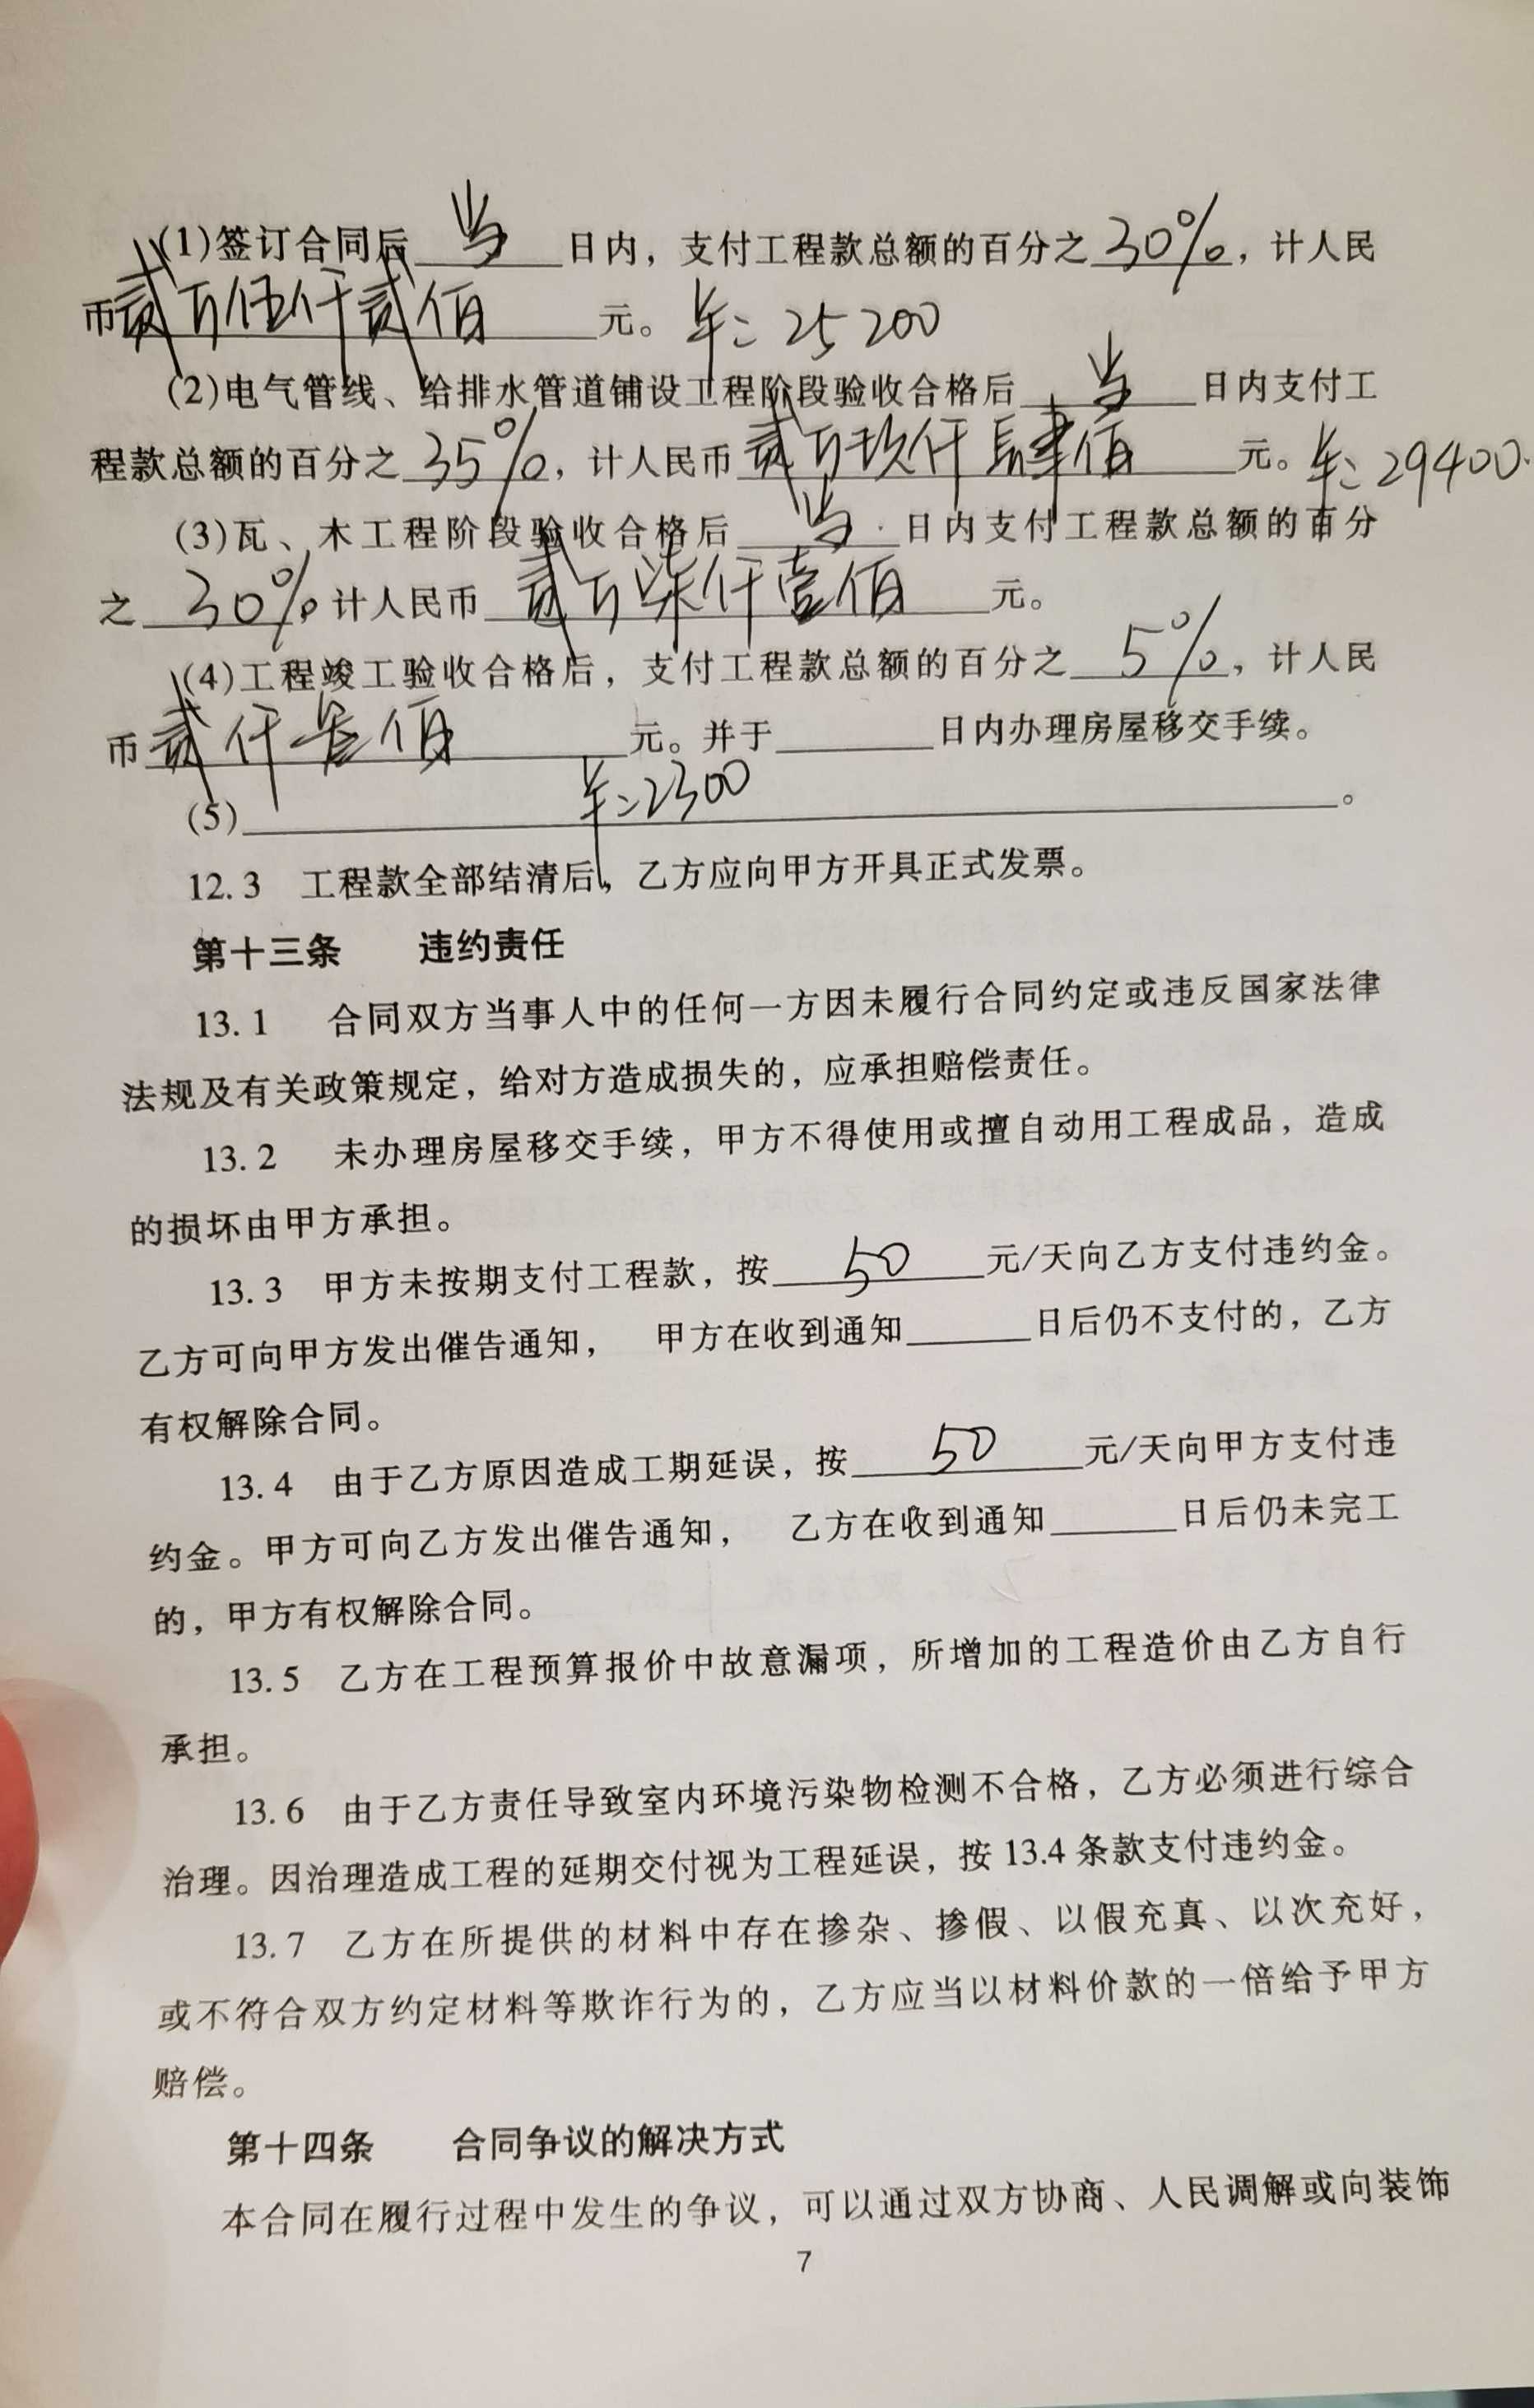 (1)签订合同后 当 日内，支付工程款总额的百分之 30%，计人民
币 贰万伍仟贰佰 元。 ¥: 25200
(2)电气管线、给排水管道铺设工程阶段验收合格后 当 日内支付工
程款总额的百分之 35%，计人民币 贰万玖仟肆佰 元。 ¥: 29400.
(3)瓦、木工程阶段验收合格后 当 日内支付工程款总额的百分
之 30%，计人民币 贰万柒仟壹佰 元。
(4)工程竣工验收合格后，支付工程款总额的百分之 5%，计人民
币 贰仟叁佰 元。并于______日内办理房屋移交手续。
(5) ¥: 2300 。
12.3 工程款全部结清后，乙方应向甲方开具正式发票。
第十三条 违约责任
13.1 合同双方当事人中的任何一方因未履行合同约定或违反国家法律
法规及有关政策规定，给对方造成损失的，应承担赔偿责任。
13.2 未办理房屋移交手续，甲方不得使用或擅自动用工程成品，造成
的损坏由甲方承担。
13.3 甲方未按期支付工程款，按 50 元/天向乙方支付违约金。
乙方可向甲方发出催告通知， 甲方在收到通知______日后仍不支付的，乙方
有权解除合同。
13.4 由于乙方原因造成工期延误，按 50 元/天向甲方支付违
约金。甲方可向乙方发出催告通知， 乙方在收到通知______日后仍未完工
的，甲方有权解除合同。
13.5 乙方在工程预算报价中故意漏项，所增加的工程造价由乙方自行
承担。
13.6 由于乙方责任导致室内环境污染物检测不合格，乙方必须进行综合
治理。因治理造成工程的延期交付视为工程延误，按 13.4 条款支付违约金。
13.7 乙方在所提供的材料中存在掺杂、掺假、以假充真、以次充好，
或不符合双方约定材料等欺诈行为的，乙方应当以材料价款的一倍给予甲方
赔偿。
第十四条 合同争议的解决方式
本合同在履行过程中发生的争议，可以通过双方协商、人民调解或向装饰
7